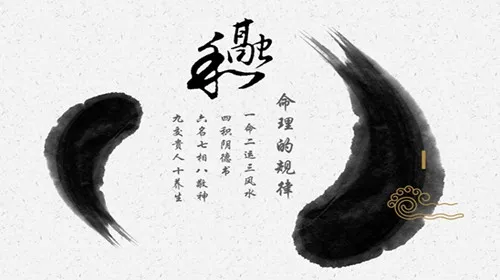 融和
命理的规律
一命二运三风水
四积阴德书
六名七相八敬神
九交贵人十养生